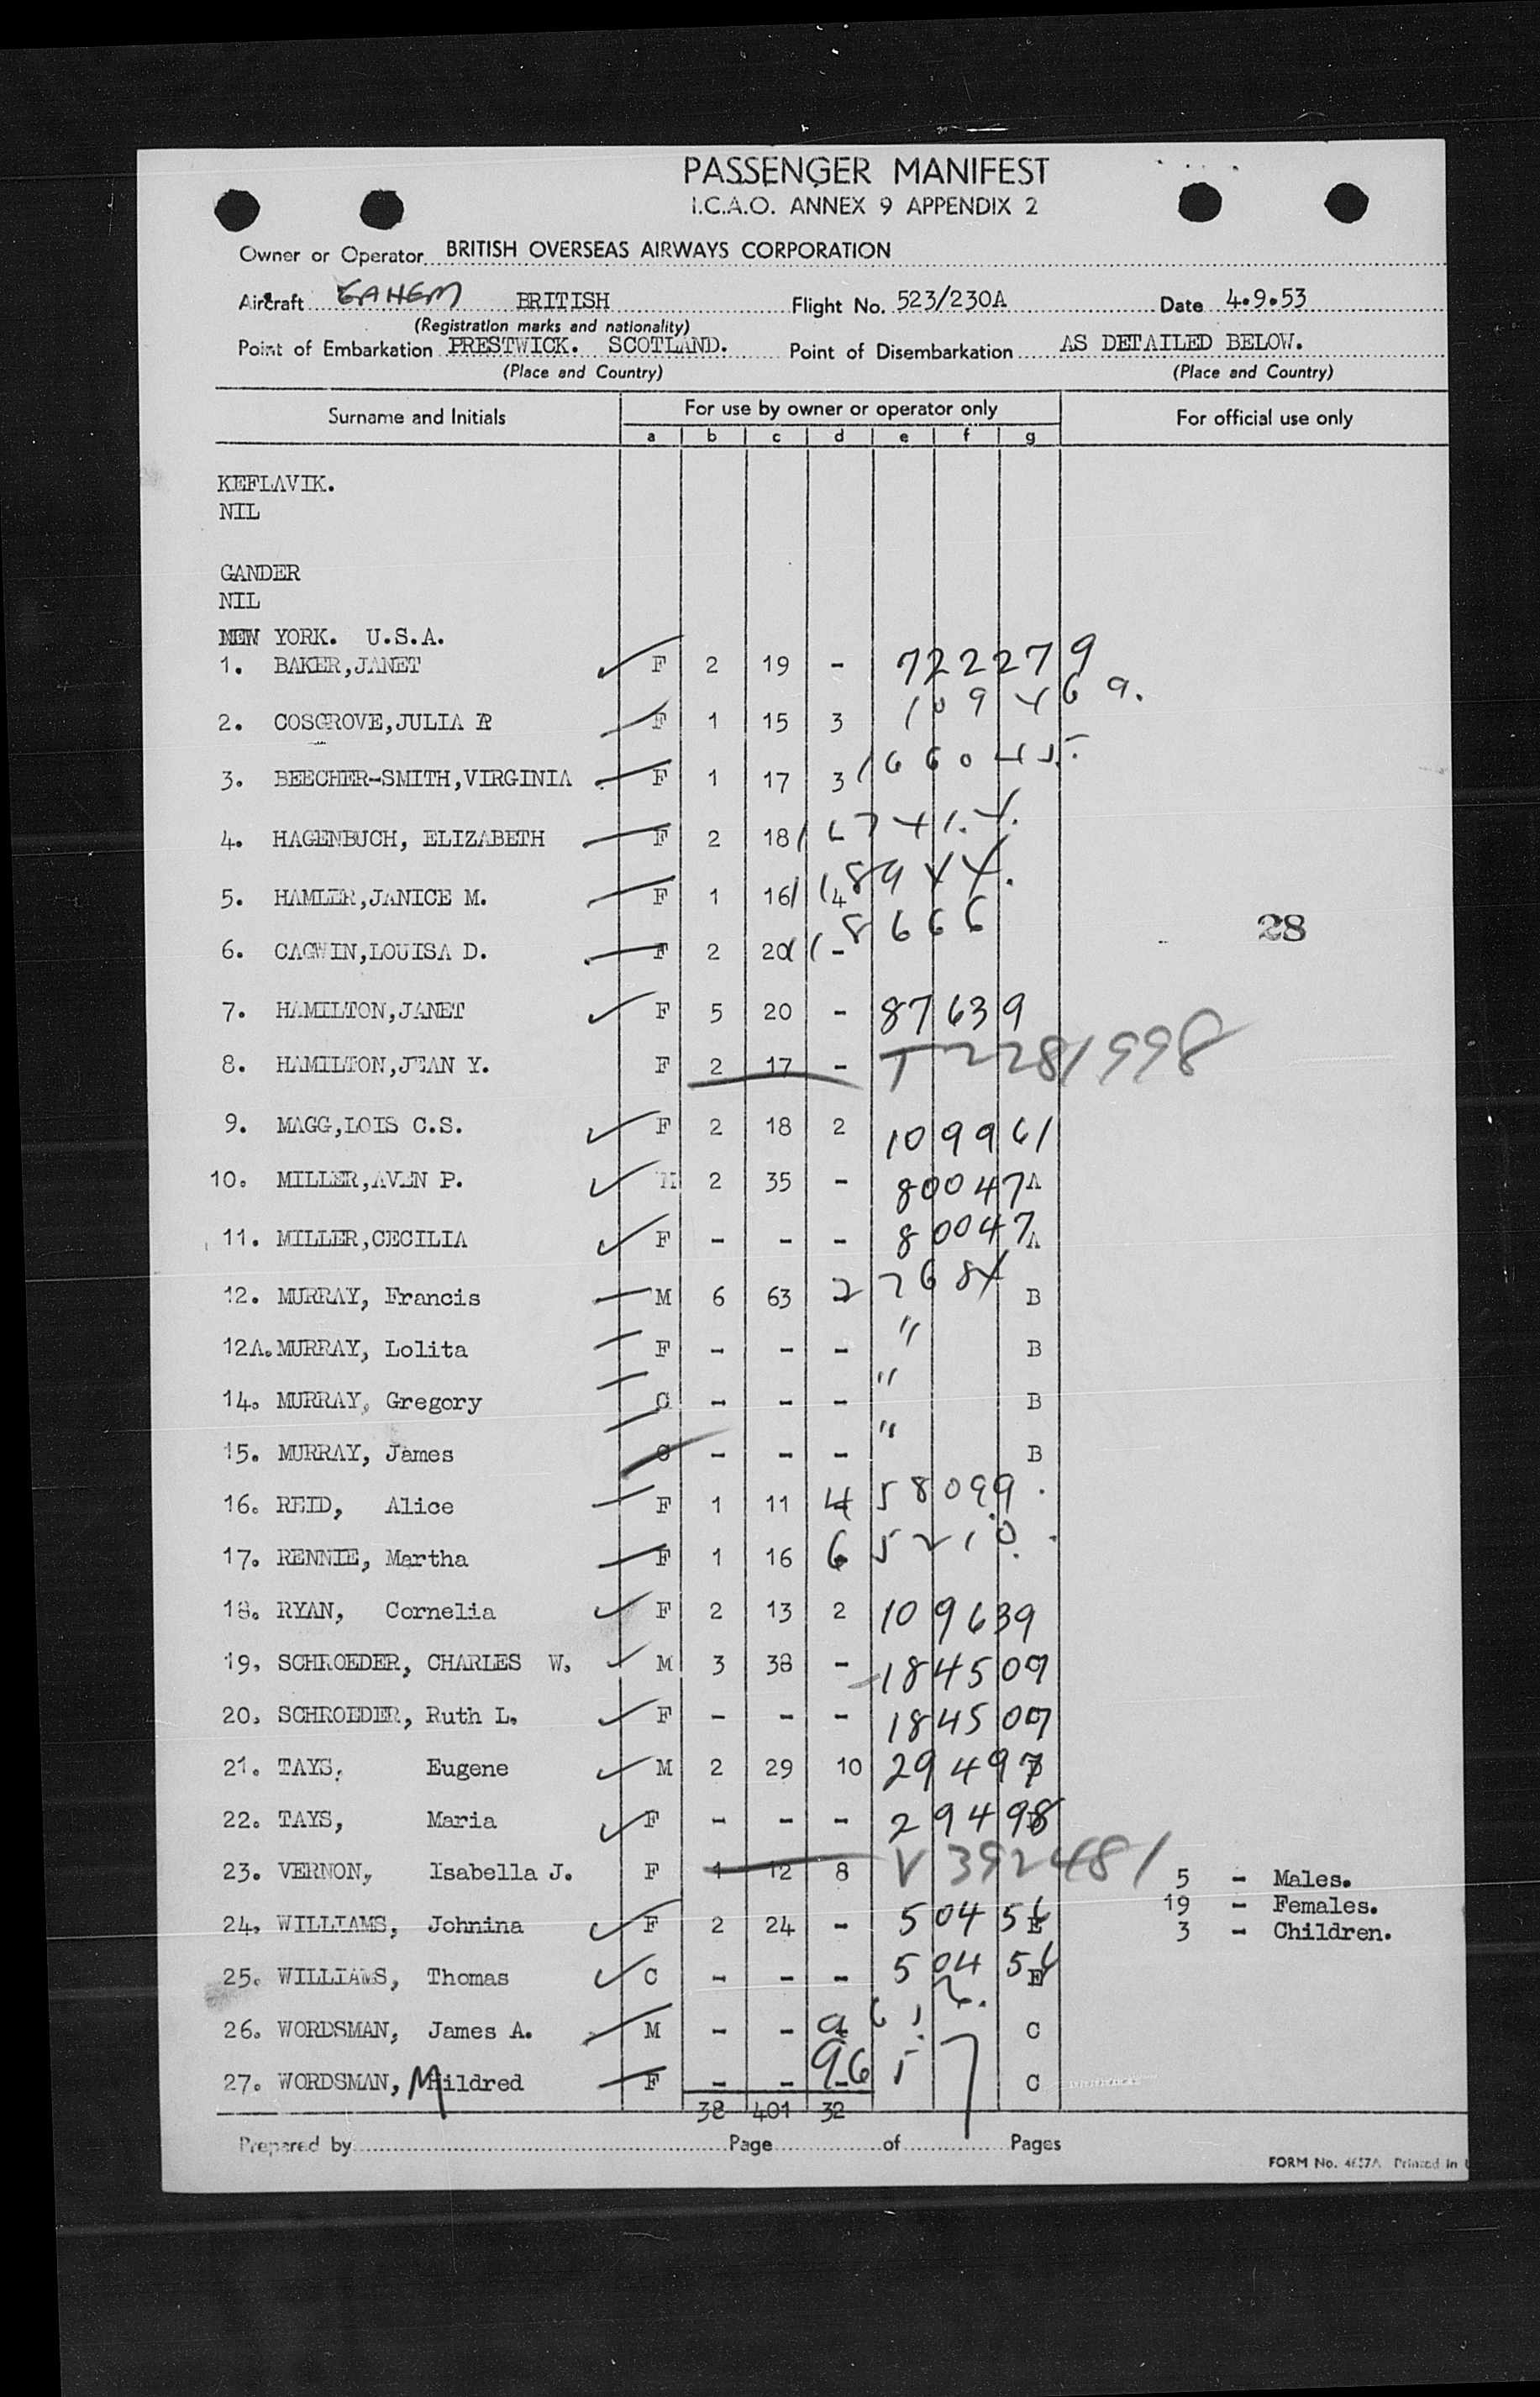 PASSENGER MANIFEST
I.C.A.O. ANNEX 9 APPENDIX 2
Owner or Operator BRITISH OVERSEAS AIRWAYS CORPORATION
Aircraft GAHEM BRITISH Flight No. 523/230A Date 4.9.53
(Registration marks and nationality)
Point of Embarkation PRESTWICK. SCOTLAND. Point of Disembarkation AS DETAILED BELOW.
(Place and Country) (Place and Country)
Surname and Initials For use by owner or operator only For official use only
a b c d e f g
KEFLAVIK.
NIL
GANDER
NIL
NEW YORK. U.S.A.
1. BAKER,JANET F 2 19 - 722279
2. COSGROVE,JULIA R F 1 15 3 109469.
3. BEECHER-SMITH,VIRGINIA F 1 17 3 166045
4. HAGENBUCH, ELIZABETH F 2 18
5. HAMLER,JANICE M. F 1 16 4
28
6. CAGWIN,LOUISA D. F 2 20 - 118666
7. HAMILTON,JANET F 5 20 - 87639
8. HAMILTON,JEAN Y. F 2 17 - T2281998
9. MAGG,LOIS C.S. F 2 18 2 109961
10. MILLER,AVEN P. M 2 35 - 80047 A
11. MILLER,CECILIA F - - - 80047 A
12. MURRAY, Francis M 6 63 - 27684 B
12A. MURRAY, Lolita F - - - " B
14. MURRAY, Gregory C - - - " B
15. MURRAY, James C - - - " B
16. REID, Alice F 1 11 458099.
17. RENNIE, Martha F 1 16 65210.
18. RYAN, Cornelia F 2 13 2 109639
19. SCHROEDER, CHARLES W. M 3 38 - 184509
20. SCHROEDER, Ruth L. F - - - 184509
21. TAYS, Eugene M 2 29 10 29497
22. TAYS, Maria F - - - 29498
23. VERNON, Isabella J. F 1 12 8 V392481
5 - Males.
19 - Females.
24. WILLIAMS, Johnina F 2 24 - 50456 E
3 - Children.
25. WILLIAMS, Thomas C - - - 50456 E
26. WORDSMAN, James A. M - - - C
27. WORDSMAN, Mildred F - - - 9657 C
38 401 32
Prepared by Page of Pages
FORM No. 4637A Printed in